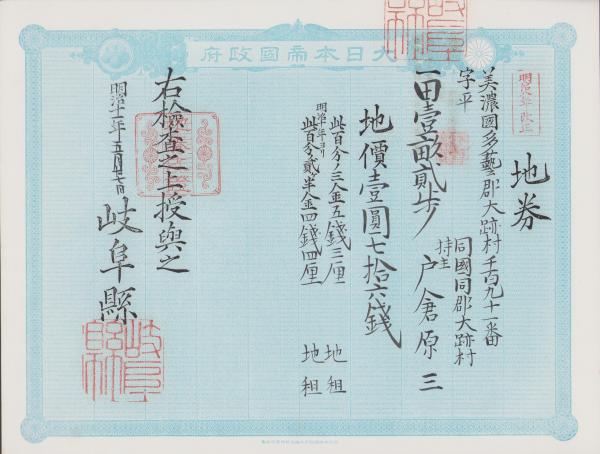 大日本帝國政府
明治八年改正
地券
美濃國多藝郡大跡村千百九十一番
字平
同國同郡大跡村
持主 戸倉原三
一田壹畝貳歩
地價壹圓七拾六錢
此百分ノ三金五錢三厘 地租
明治十年ヨリ
此百分貳半金四錢四厘 地租
右檢査之上授與之
明治十一年五月廿七日
岐阜縣
岐阜縣印